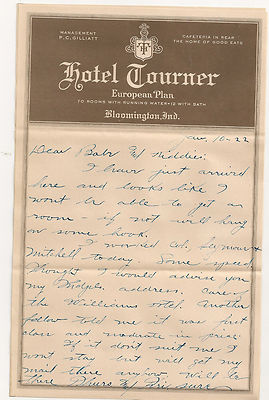 MANAGEMENT
P. C. GILLIATT
CAFETERIA IN REAR
THE HOME OF GOOD EATS
Hotel Tourner
European Plan
70 ROOMS WITH RUNNING WATER - 12 WITH BATH
Bloomington, Ind.
Jan, 10-22
Dear Babe & Kiddies:
I have just arrived
here and looks like I
wont be able to get a
room - if not will hang
on some hook.
I worried Col, Seymour &
Mitchell today. Some speed,
thought I would advise you
my Mpls, address, care-
the Williams Hotel. Another
fellow told me it was first
class and moderate in price;
If it don't suit me I
wont stay but will get my
mail there anyhow Will be
there